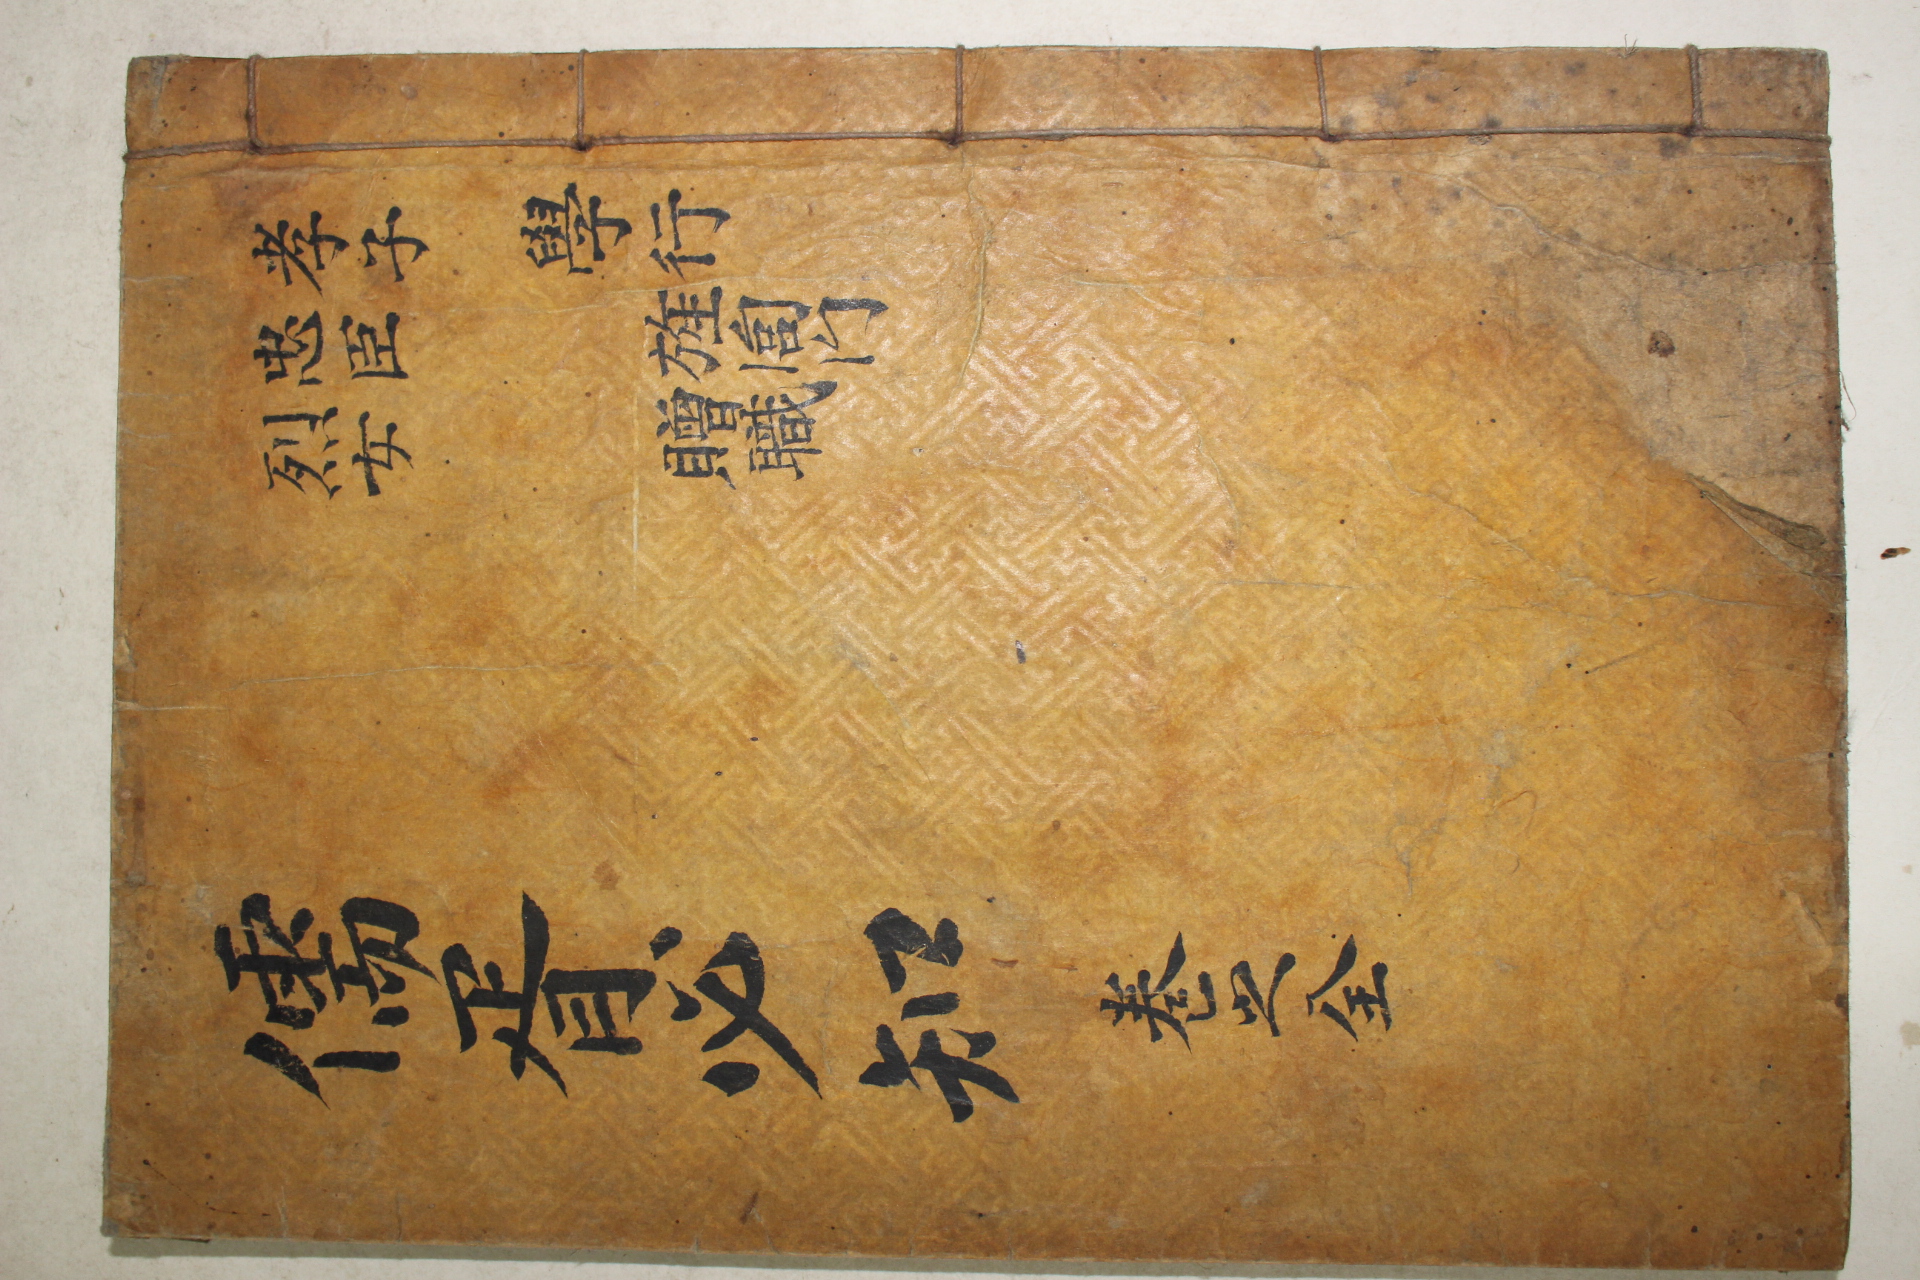 孝子 學行
忠臣 旌閭門
烈女 贈職
儒胥必知 卷之全